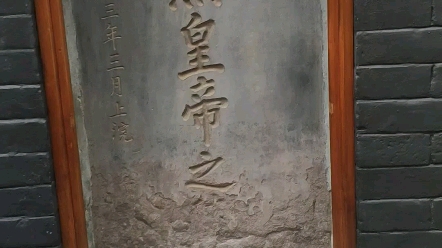 皇帝之
三年三月上浣